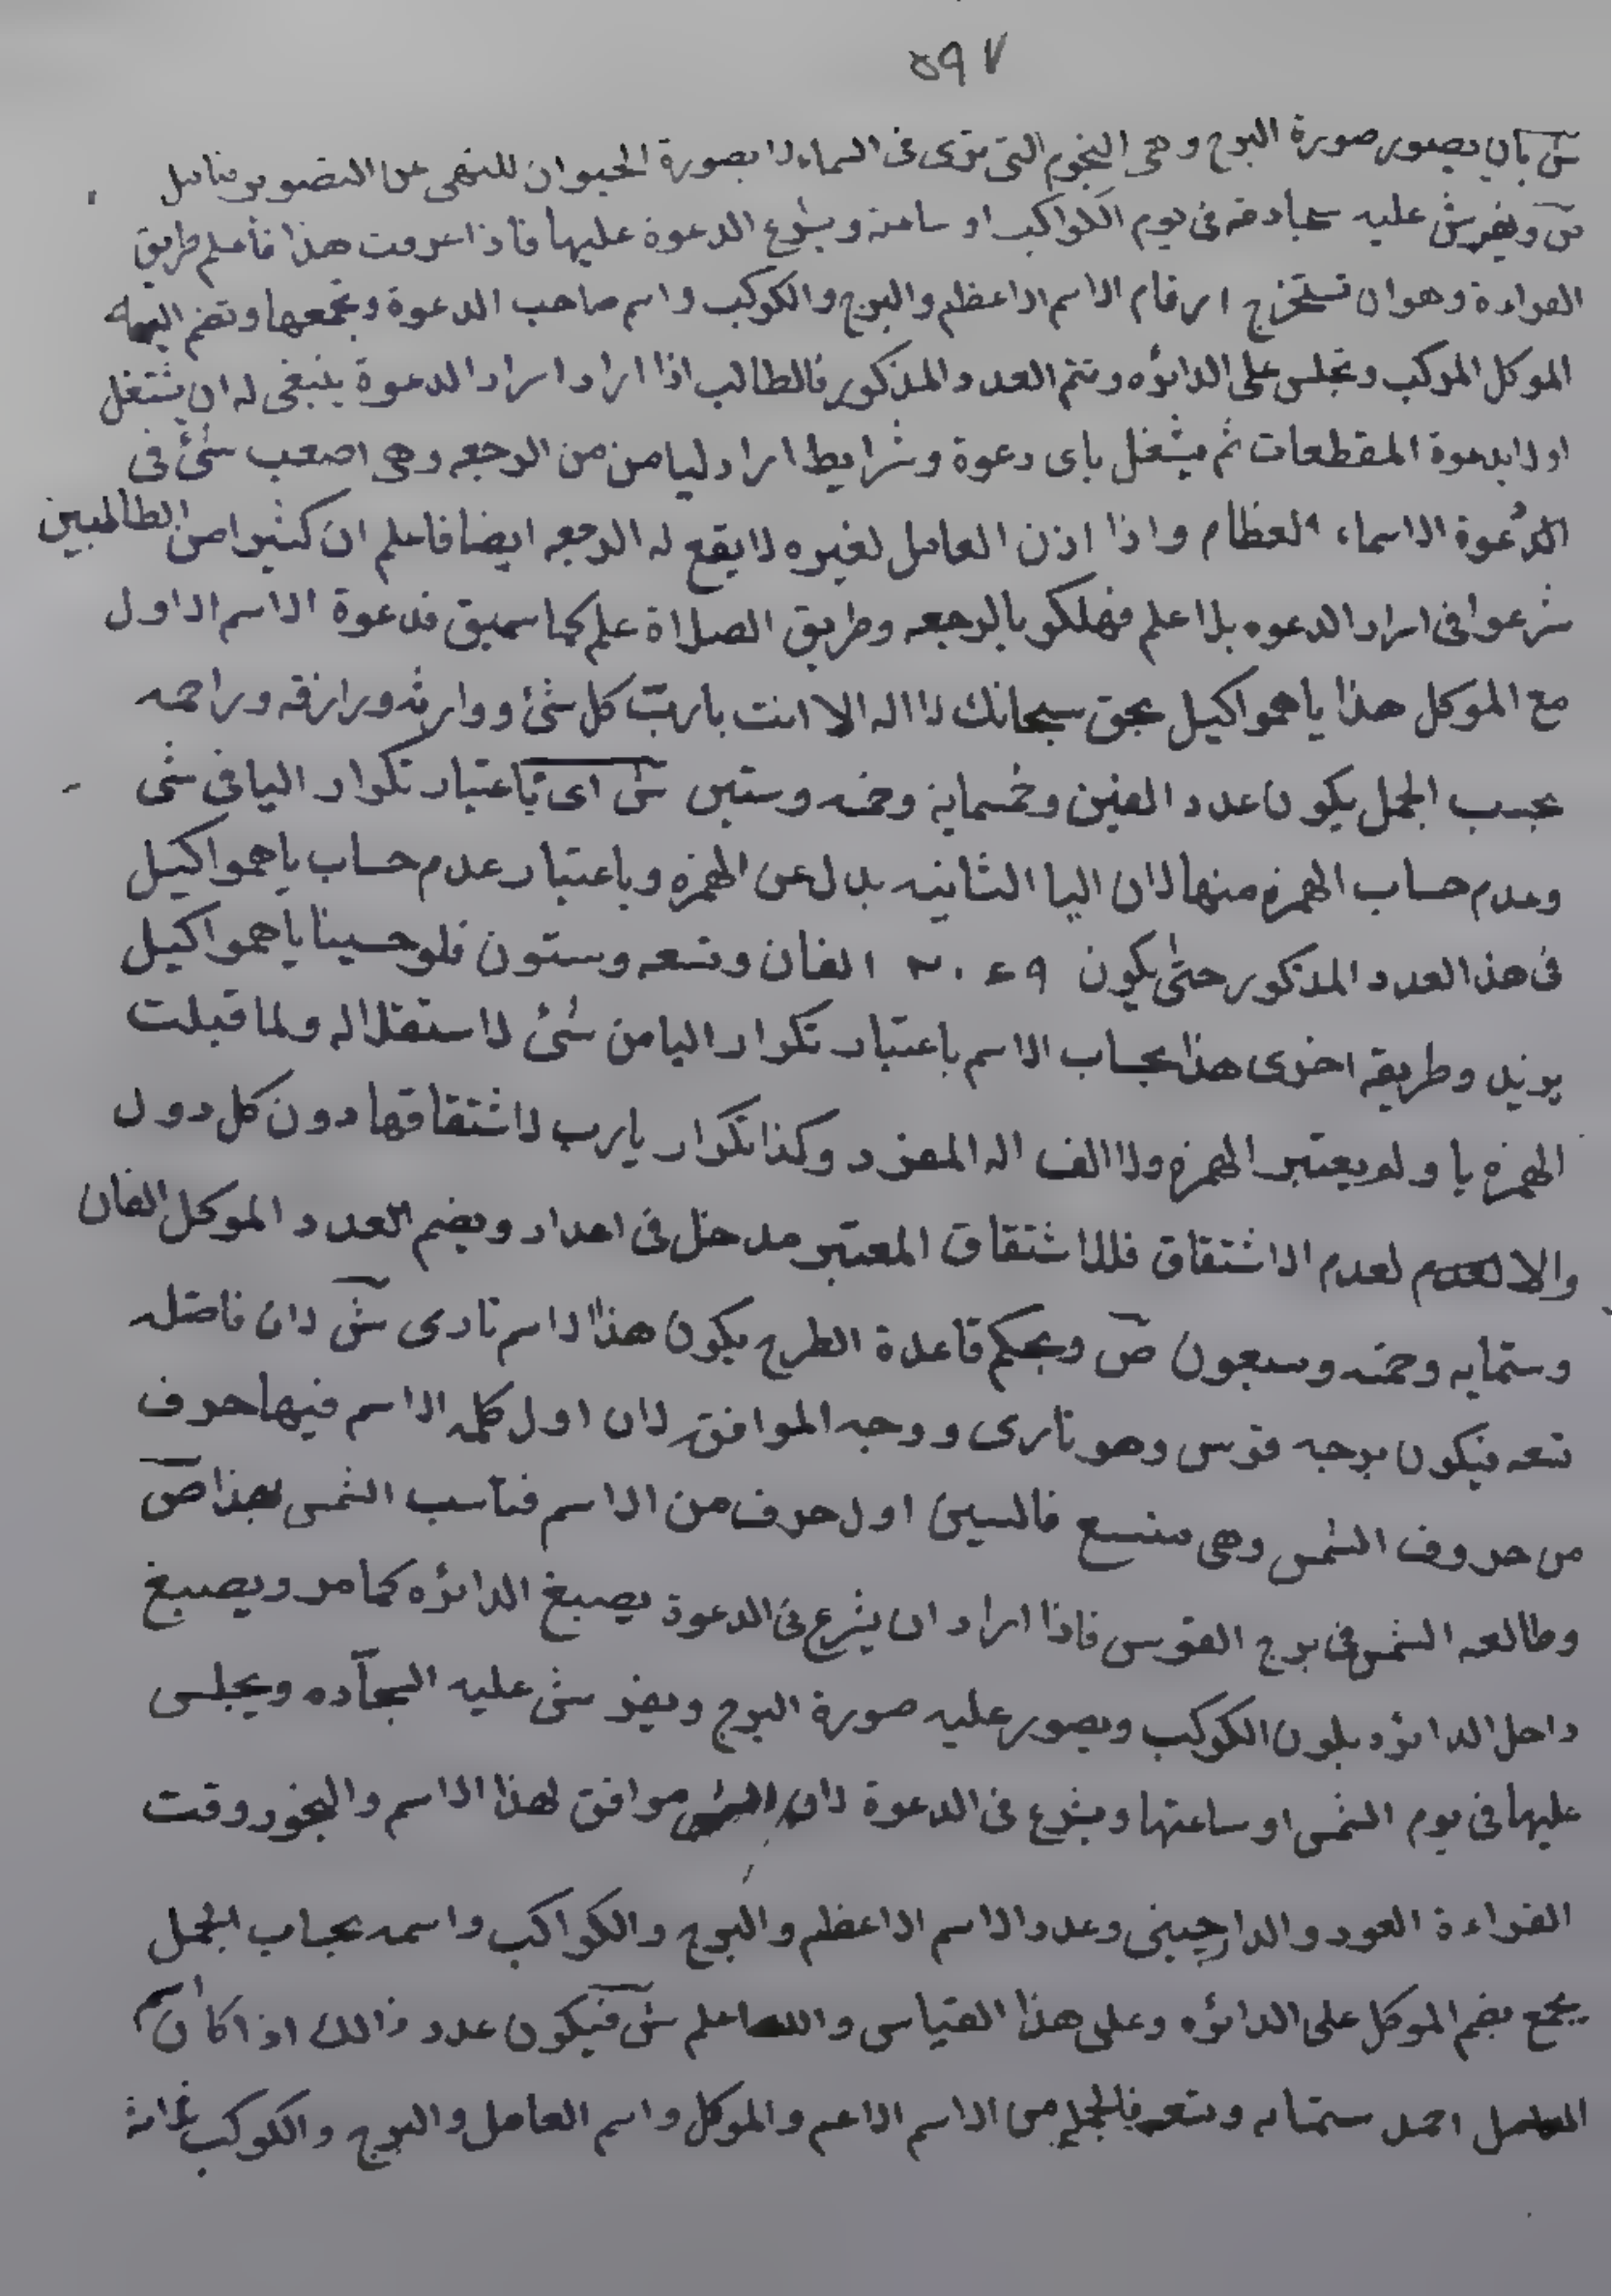 ٥٩٧
ش بان يصور صورة البرج وهى النجوم التى ترى فى السماء لا بصورة الحيوان للنهى عن التصوير فتامل
ص ويفرش عليه سجادته فى يوم الكواكب او ساعته ويشرع الدعوة عليها فاذا عرفت هذا فأعلم طريق
القراءة وهو ان تستخرج ارقام الاسم الاعظم والبرج والكوكب واسم صاحب الدعوة وتجمعها وتضم اليها
الموكل المركب وتجلس على الدائره وتتم العدد المذكور فالطالب اذا اراد اىراد الدعوة ينبغى له ان يشتغل
اولا بدعوة المقطعات ثم يشغل باى دعوة وشرايط اىراد ليامن من الرجعه وهى اصعب شئ فى
الدعوة الاسماء العظام واذا اذن العامل لغيره لا يقع له الرجعه ايضا فاعلم ان كثيرا من الطالبين
شرعوا فى اىراد الدعوه بلا علم فهلكو بالرجعه وطريق الصلاة علم كما سبق فدعوة الاسم الاول
مع الموكل هذا يا همواكيل بحق سبحانك لا اله الا انت يارب كل شئ ووارثه ورازقه وراحمه
بحسب الجمل يكون عدد الفين وخمسماية وخمسه وستين ش اى باعتبار تكرار اليا فى شى
وعدم حساب الهمزه منها لان اليا الثانيه بدل عن الهمزه وباعتبار عدم حساب ياهمواكيل
فى هذ العدد المذكور حتى يكون ٢٠٤٩ الفان وتسعه وستون فلو حسبنا ياهمواكيل
يزيد وطريقه اخرى هذا بحساب الاسم باعتبار تكرار اليا من شئ لاستقلاله ولما قبلت
الهمزه يا ولم يعتبر الهمزه ولا الف اله المفرد وكذا تكرار يارب لاشتقاقها دون كل دول
والا لعدم الاشتقاق فللاشتقاق المعتبر مدخل فى اعداد ويضم العدد الموكل الفان
وستمايه وخمسه وسبعون ص وبحكم قاعدة الطرح يكون هذا الاسم نارى ش لان فاضله
تسعه فيكون برجه قوس وهو نارى ووجه الموافق لان اول كلمه الاسم فيها حرف
من حروف الشمس وهى منسع فالسين اول حرف من الاسم فناسب الشمس بهذا ص
وطالعه الشمس فى برج القوس فاذا اراد ان يشرع فى الدعوة يصبغ الدائره كما مر ويصبغ
داخل الدائره بلون الكوكب ويصور عليه صورة البرج ويفرش عليه السجاده ويجلس
عليها فى يوم الشمس او ساعتها ويشرع فى الدعوة لان الشمس موافق لهذا الاسم والبخور وقت
القراءة العود والدارچينى وعدد الاسم الاعظم والبرج والكواكب واسمه بحساب الجمل
يجمع بضم الموكل على الدائره وعلى هذا القياس والله اعلم ش فيكون عدد ذالك اذا كان اسم
العامل احمد ستمايه وتسعه فالجمله من الاسم الاعم والموكل واسم العامل والبرج والكوكب